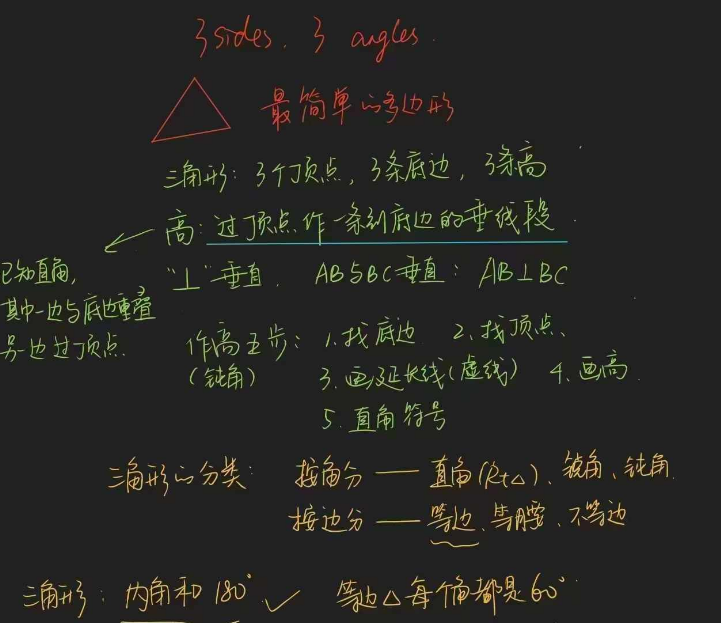 3 sides. 3 angles.
最简单的多边形
三角形: 3个顶点, 3条底边, 3条高
高: 过顶点作一条到底边的垂线段.
已知直角,
其中一边与底边重叠
另一边过顶点.
"⊥"垂直. AB与BC垂直: AB⊥BC
作高五步: 1.找底边 2.找顶点、
(钝角) 3.画延长线(虚线) 4.画高.
5.直角符号
三角形的分类: 按角分 — 直角(Rt△)、锐角、钝角.
按边分 — 等边、等腰、不等边
三角形: 内角和180° ✓ 等边△每个角都是60°.